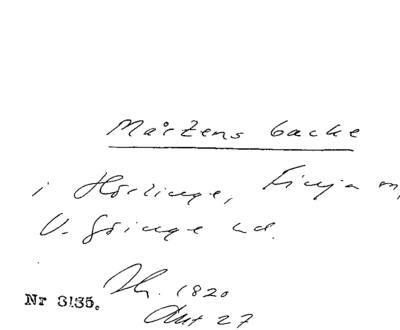 Mårtens backe
i Hörlinge, Finja sn,
V. Göinge hd.
Nr 3135.
1820
Akt 27